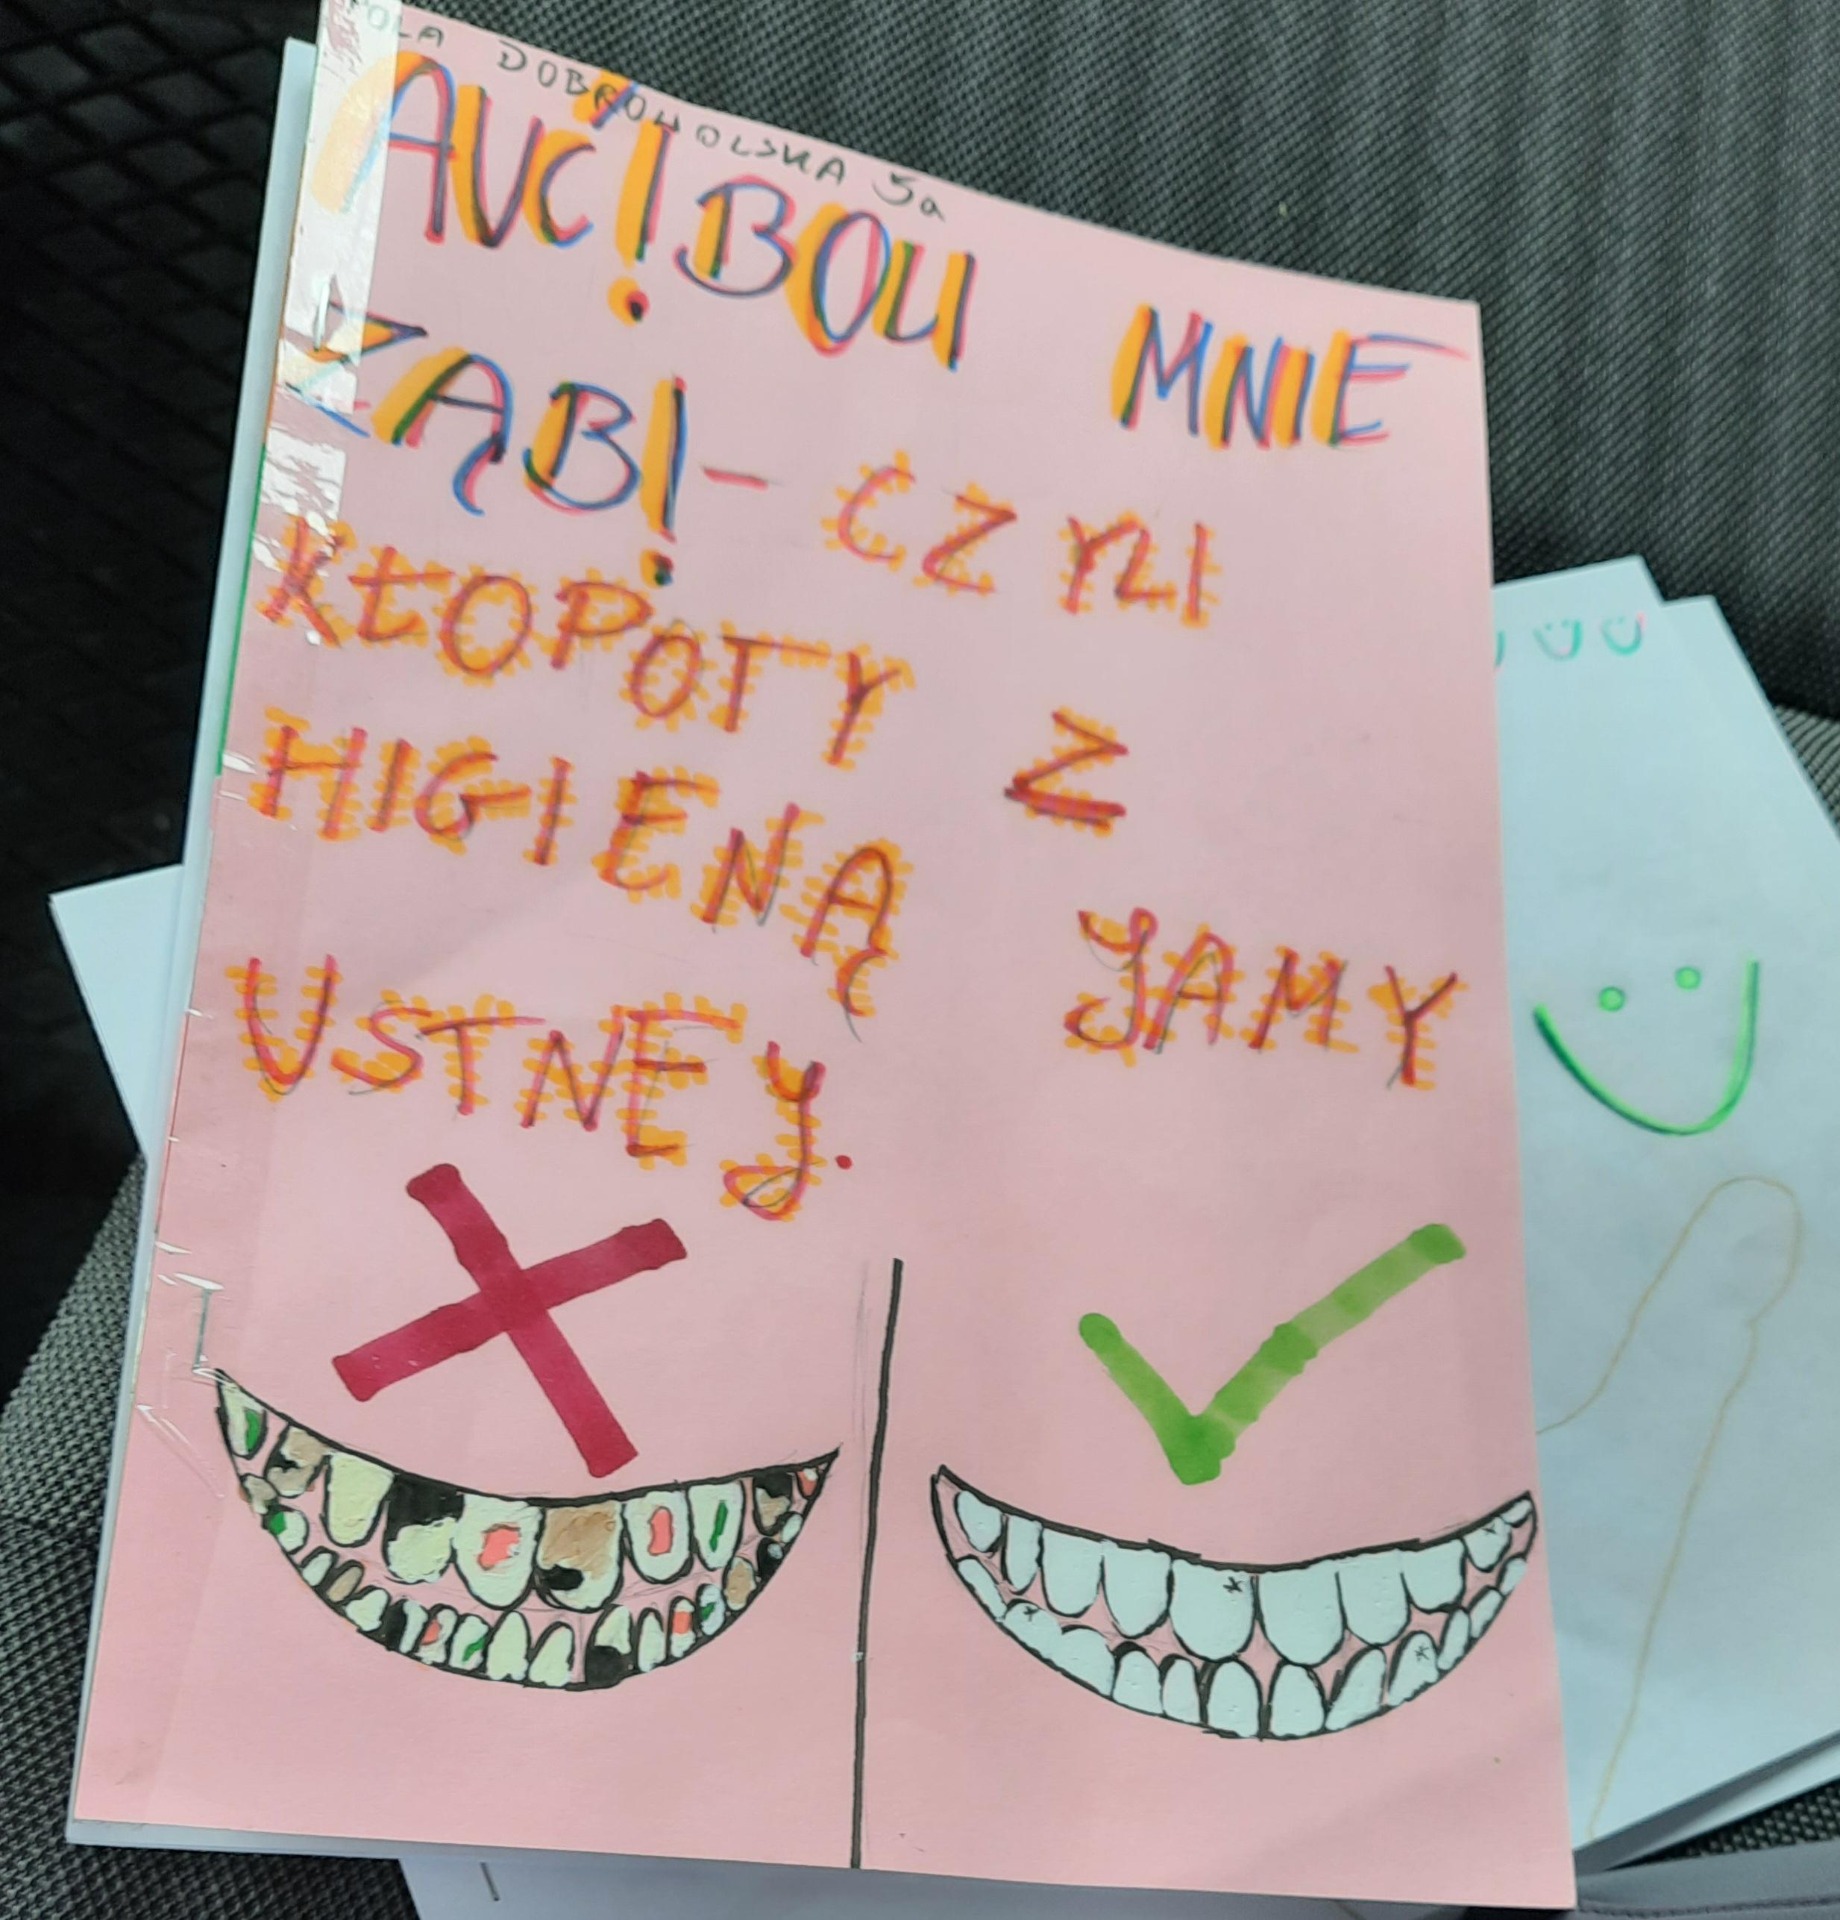 POLA DOBROWOLSKA 5a
AUĆ! BOLI MNIE
ZĄB! - CZYLI
KŁOPOTY Z
HIGIENĄ JAMY
USTNEJ.